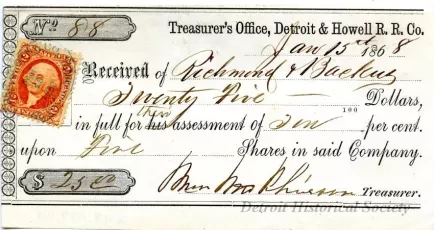 No 88
Treasurer's Office, Detroit & Howell R. R. Co.
Jan 15th 1868
Received of Richmond & Backus
Twenty Five — 100 Dollars,
in full for their assessment of Ten per cent.
upon Five Shares in said Company.
$ 25 00
Treasurer.
Detroit Historical Society